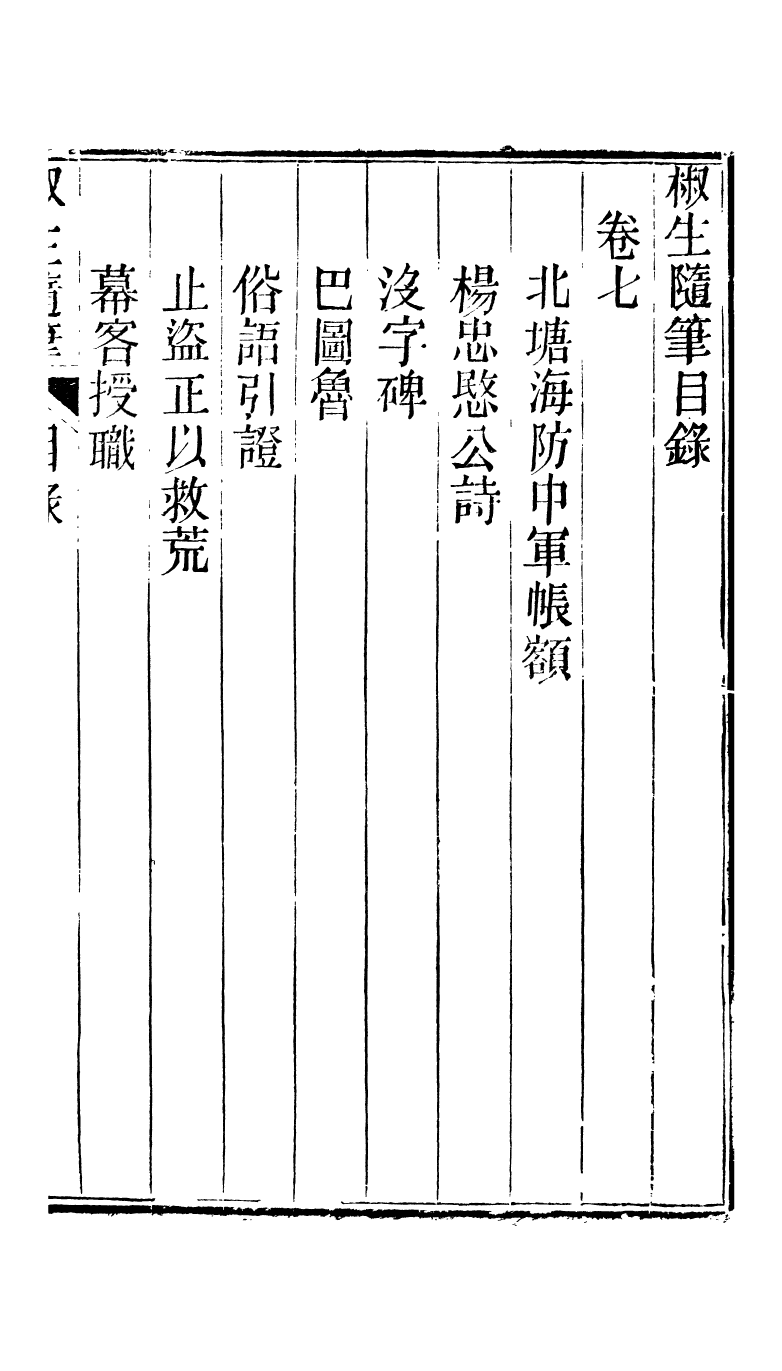 椒生隨筆目錄
卷七
北塘海防中軍帳額
楊忠愍公詩
沒字碑
巴圖魯
俗語引證
止盜正以救荒
幕客授職